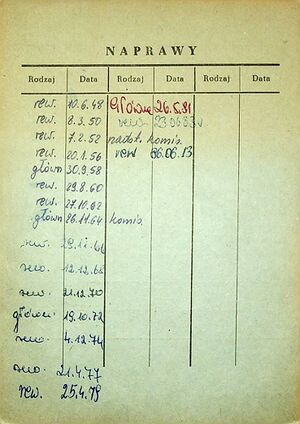 NAPRAWY
Rodzaj Data Rodzaj Data Rodzaj Data
rew. 10.6.48 Główna 26.5.81
rew. 8.3.50 rew. 23.06.83
rew. 7.2.52 nadst. komis.
rew. 20.1.56 rew 86.06.13
główn 30.9.58
rew. 29.8.60
rew. 27.10.62
główn 26.11.64 komis.
rew. 29.11.66
rew. 12.12.68
rew. 21.12.70
główn. 19.10.72
rew. 4.12.74
rew. 21.4.77
rew. 25.4.79